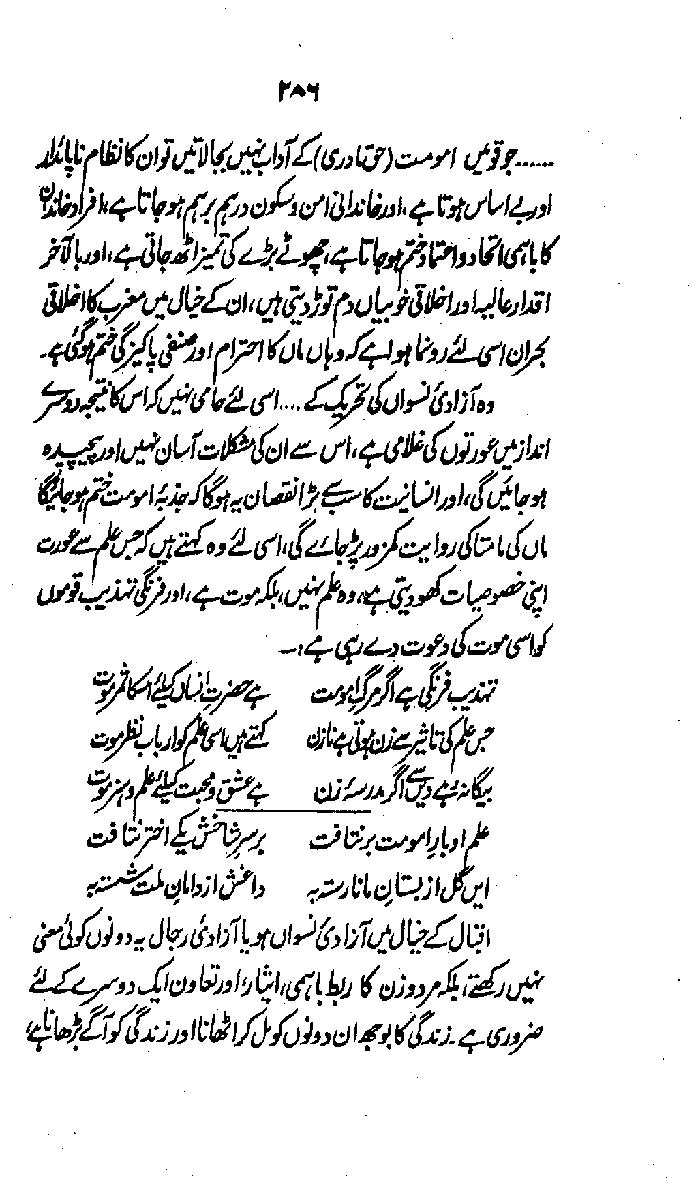 ۲۸۶
...... جو قومیں امومت (حق مادری) کے آداب نہیں بجا لاتیں تو ان کا نظام ناپائدار
اور بے اساس ہوتا ہے، اور خاندانی امن و سکون درہم برہم ہو جاتا ہے، افراد خاندان
کا باہمی اتحاد و اعتماد ختم ہو جاتا ہے، چھوٹے بڑے کی تمیز اٹھ جاتی ہے، اور بالآخر
اقدار عالیہ اور اخلاقی خوبیاں دم توڑ دیتی ہیں، ان کے خیال میں مغرب کا اخلاقی
بحران اسی لئے رونما ہوا ہے کہ وہاں ماں کا احترام اور صنفی پاکیزگی ختم ہو گئی ہے۔
وہ آزادیٔ نسواں کی تحریک کے .... اسی لئے حامی نہیں کہ اس کا نتیجہ دوسرے
انداز میں عورتوں کی غلامی ہے، اس سے ان کی مشکلات آسان نہیں اور پیچیدہ
ہو جائیں گی، اور انسانیت کا سب سے بڑا نقصان یہ ہوگا کہ جذبۂ امومت ختم ہو جائیگا
ماں کی مامتا کی روایت کمزور پڑ جائے گی، اسی لئے وہ کہتے ہیں کہ جس علم سے عورت
اپنی خصوصیات کھو دیتی ہے، وہ علم نہیں، بلکہ موت ہے، اور فرنگی تہذیب قوموں
کو اسی موت کی دعوت دے رہی ہے :۔
تہذیب فرنگی ہے اگر مرگ امومت ہے حضرت انساں کیلئے اسکا ثمر موت
جس علم کی تاثیر سے زن ہوتی ہے نازن کہتے ہیں اسی علم کو ارباب نظر موت
بیگانہ ہے دیں سے اگر مدرسۂ زن ہے عشق و محبت کیلئے علم و ہنر موت
علم او بار امومت بر نتافت بر سر شاخش یکے اختر نتافت
ایں گل از بستان ما نارستہ بہ داغش از دامان ملت شستہ بہ
اقبال کے خیال میں آزادیٔ نسواں ہو یا آزادیٔ رجال یہ دونوں کوئی معنی
نہیں رکھتے، بلکہ مرد و زن کا ربط باہمی، ایثار، اور تعاون ایک دوسرے کے لئے
ضروری ہے۔ زندگی کا بوجھ ان دونوں کو مل کر اٹھانا اور زندگی کو آگے بڑھانا ہے،